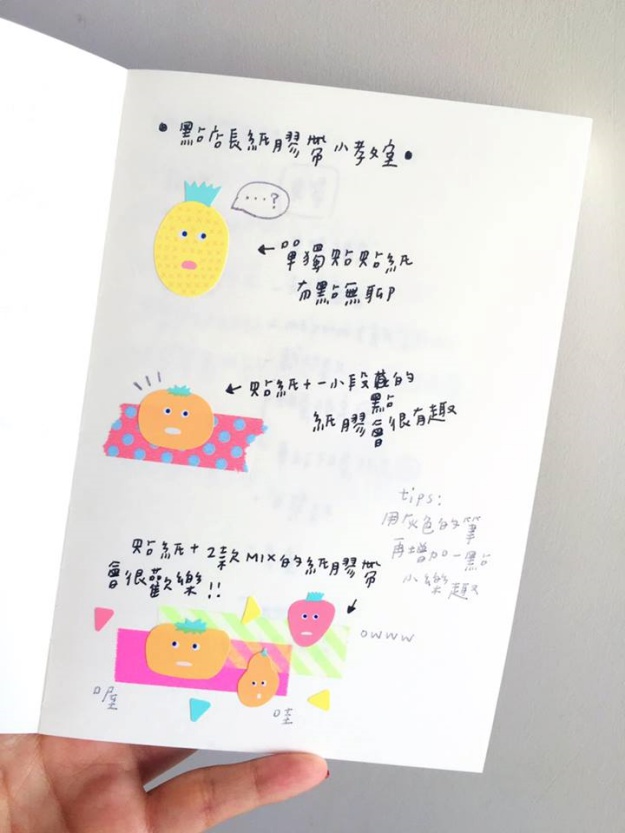 • 點店長紙膠帶小教室 •
...?
←單獨貼貼紙
有點無聊
←貼紙+一小段的
點
紙膠會很有趣
tips:
用灰色的筆
再增加一點
小樂趣
貼紙+2款MIX的紙膠帶
會很歡樂!!
owww
哇